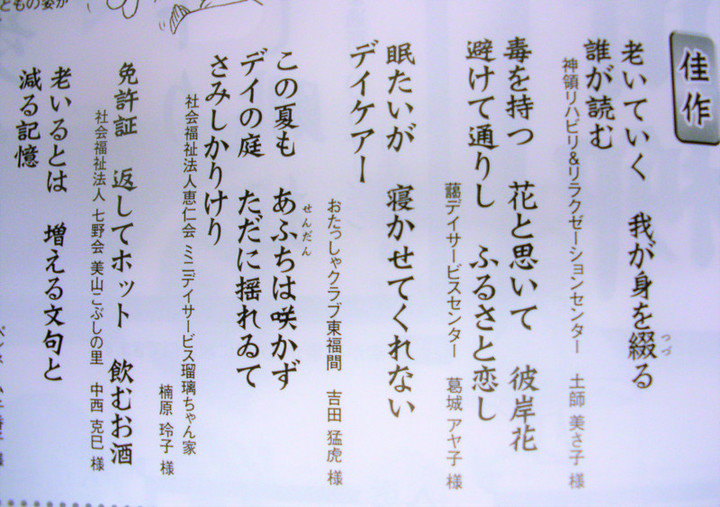 ともの姿が
佳作
老いていく 我が身を綴る
つづ
誰が読む
神領リハビリ&リラクゼーションセンター 土師 美さ子 様
毒を持つ 花と思いて 彼岸花
避けて通りし ふるさと恋し
藹デイサービスセンター 葛城 アヤ子 様
眠たいが 寝かせてくれない
デイケアー
おたっしゃクラブ東福間 吉田 猛虎 様
この夏も あふちは咲かず
せんだん
デイの庭 ただに揺れるて
さみしかりけり
社会福祉法人恵仁会 ミニデイサービス瑠璃ちゃん家
楠原 玲子 様
免許証 返してホット 飲むお酒
社会福祉法人 七野会 美山こぶしの里 中西 克巳 様
老いるとは 増える文句と
減る記憶